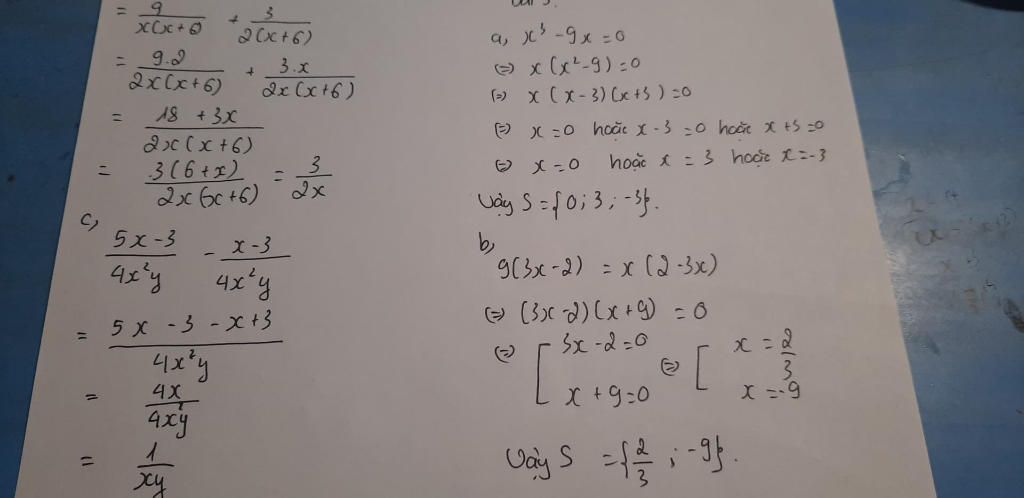 = 9/x(x+6) + 3/2(x+6)
= 9.2/2x(x+6) + 3.x/2x(x+6)
= 18 + 3x/2x(x+6)
= 3(6+x)/2x(x+6) = 3/2x
c,
5x-3/4x²y - x-3/4x²y
= 5x - 3 - x+3/4x²y
= 4x/4x²y
= 1/xy
a, x³ - 9x = 0
(=) x (x² - 9) = 0
(=) x (x - 3) (x + 3) = 0
(=) x = 0 hoặc x - 3 = 0 hoặc x + 3 = 0
(=) x = 0 hoặc x = 3 hoặc x = -3
Vậy S = {0; 3; -3}.
b,
9(3x - 2) = x (2 - 3x)
(=) (3x - 2) (x + 9) = 0
(=) [ 3x - 2 = 0 (=) [ x = 2/3
x + 9 = 0 x = -9
Vậy S = {2/3 ; -9}.